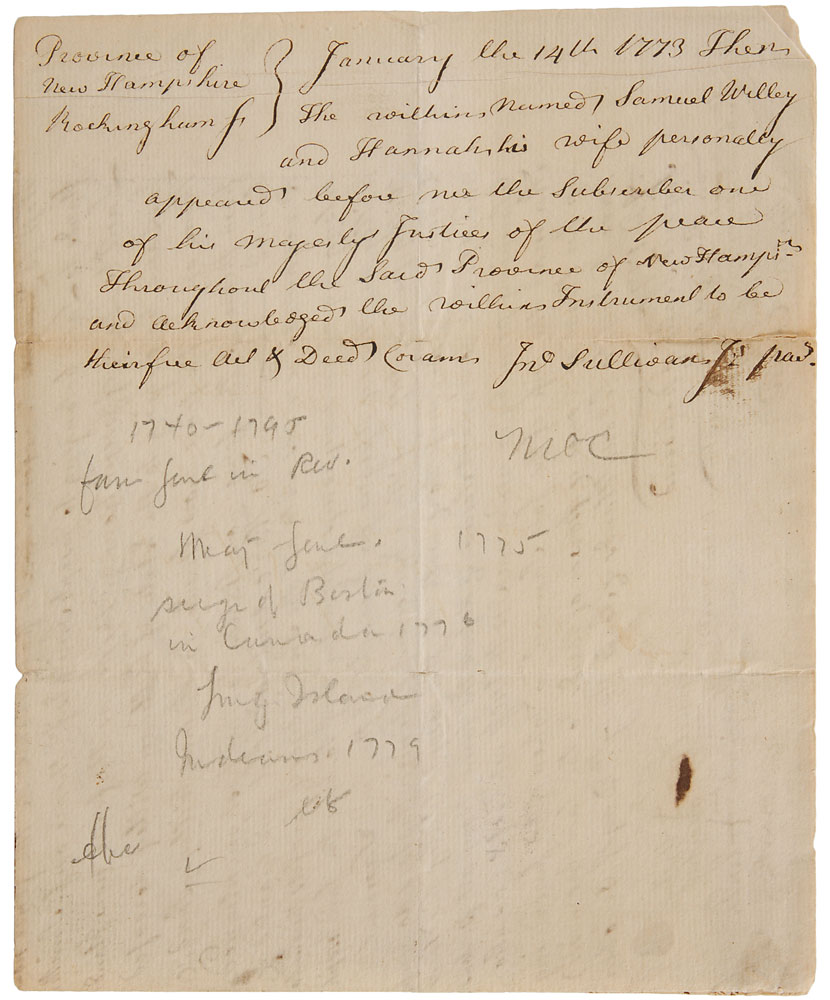 Province of
New Hampshire
Rockingham ss
January the 14th 1773 Then
The within Named Samuel Willey
and Hannah his wife personally
appeared before me the Subscriber one
of his majestys Justices of the peace
Throughout the Said Province of New Hampr
and acknowledged the within Instrument to be
their free Act & Deed Coram Jno Sullivan Js pac.
1740-1795
fam Genl in Rev.
MOC
Maj Genl. 1775
siege of Boston
in Canada 1776
Long Island
Indians 1779